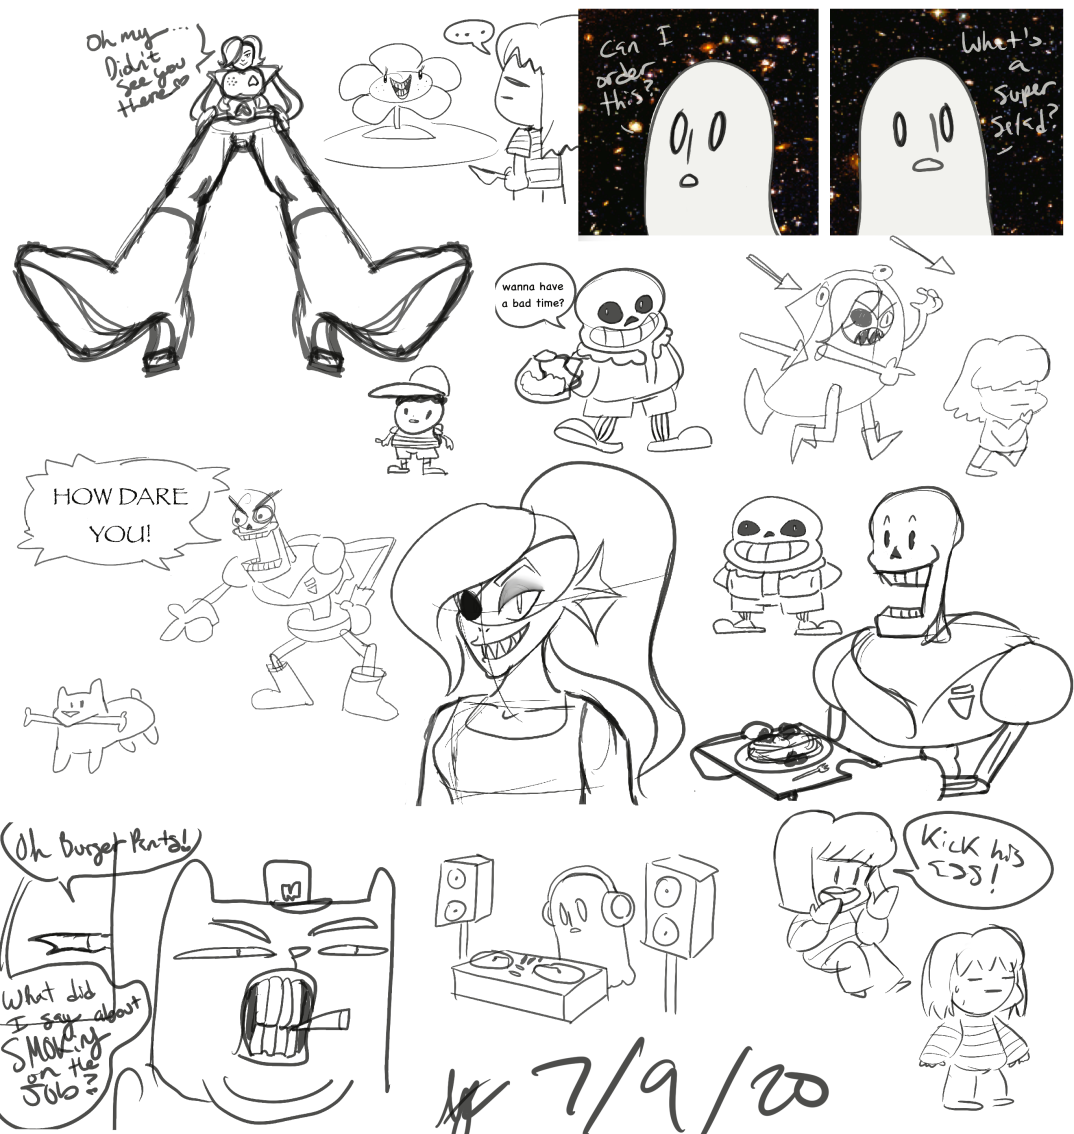 Oh my...
Didn't
see you
there
...
Can I
order
this?
What's
a
super
salad?
wanna have
a bad time?
HOW DARE
YOU!
Oh Burger Pants!
What did
I say about
SMOKing
on the
JOB?
M
Kick his
ass!
7/9/20